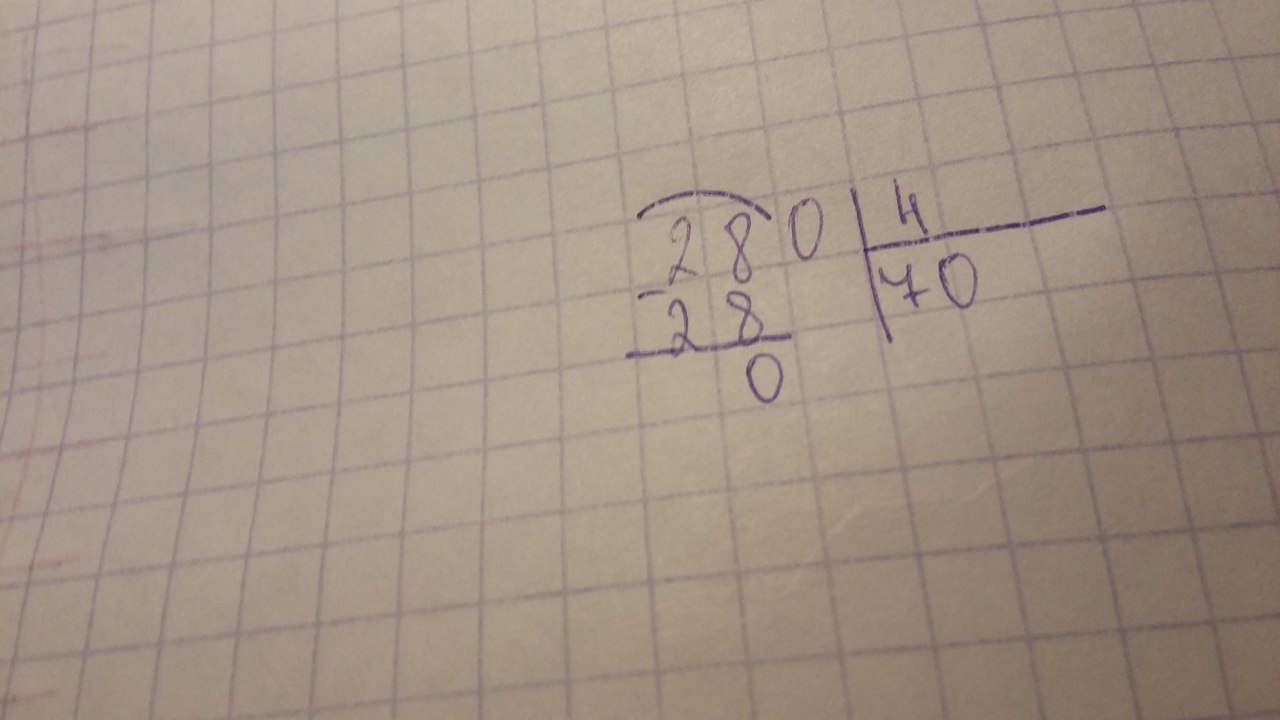 280 4
- 70
28
0